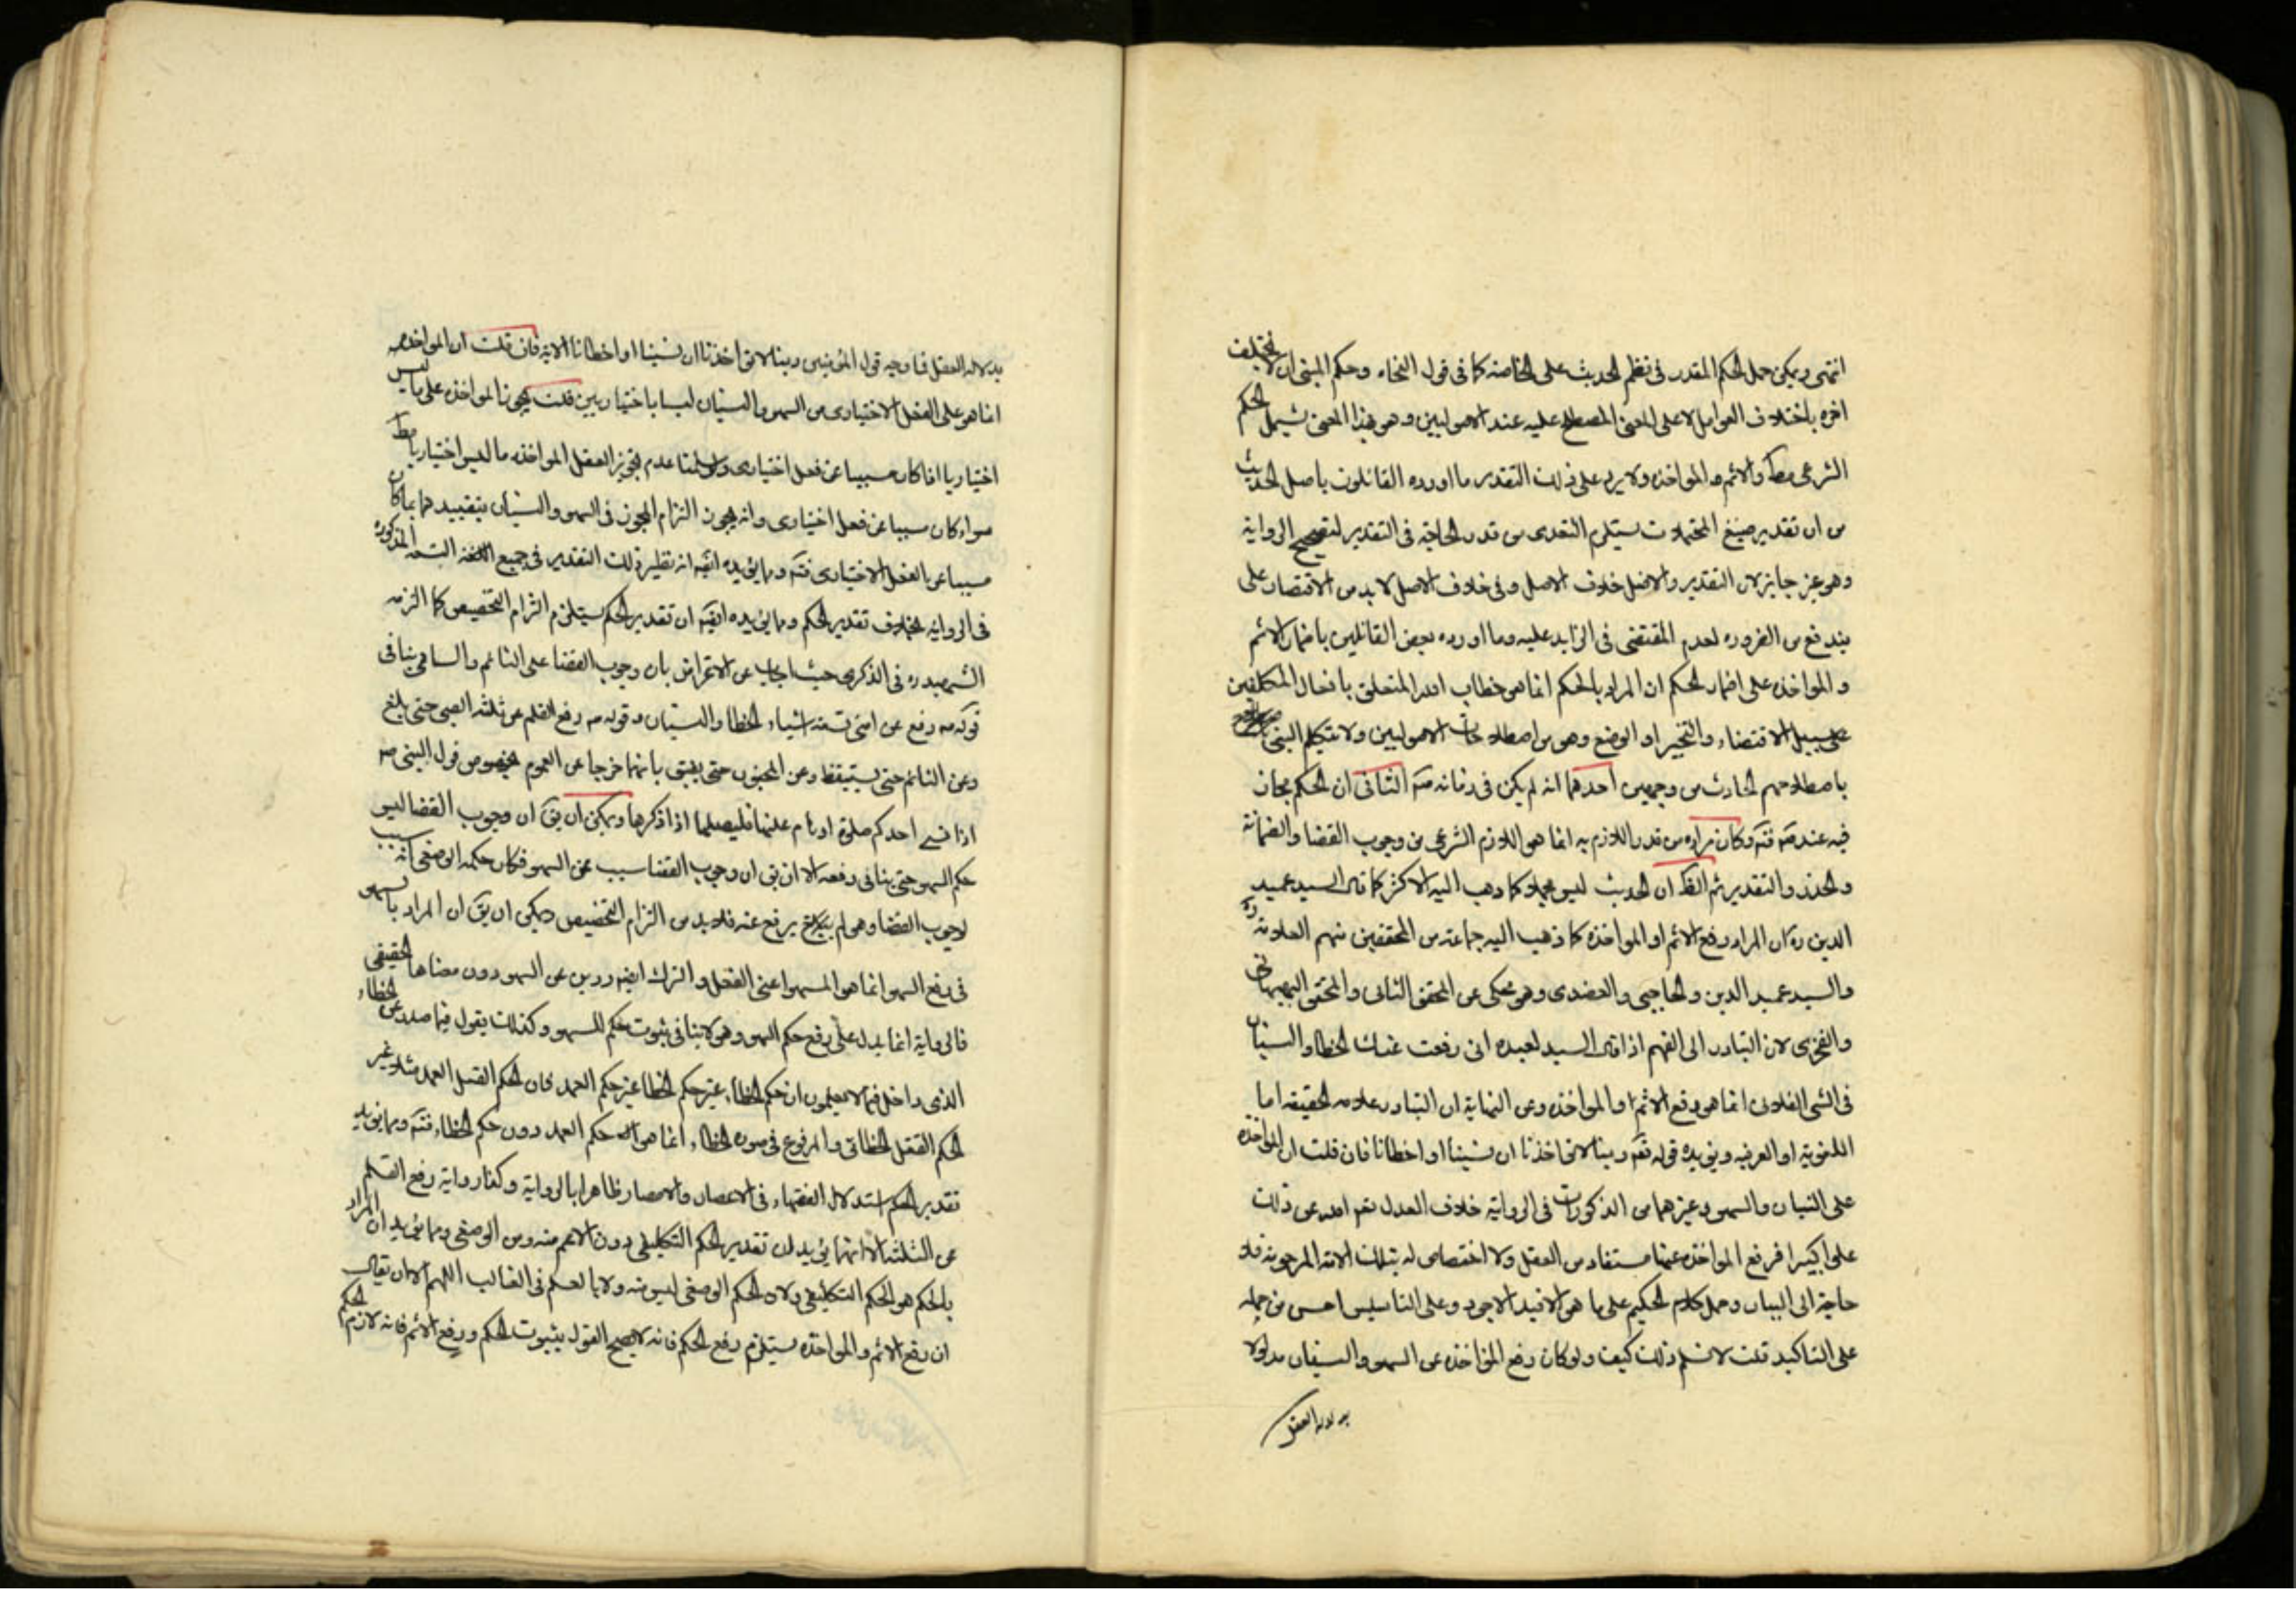 انتهى ويمكن حمل الحكم المقدر فى نظم الحديث على الخاصه كما فى قول النحاه وحكم المبنى ان لا يختلف
اخره باختلاف العوامل لا على المعنى المصطلح عليه عند الاصوليين وهو بهذا المعنى يشمل الحكم
الشرعى مط والاثم والمواخذه ولا يرد على ذلك التقدير ما اورده القائلون باصل الحديث
من ان تقدير جميع المحتملات يستلزم التعدى من قدر الحاجة فى التقدير لتصحيح الرواية
وهو غير جايز لان التقدير والاضل خلاف الاصل وفى خلاف الاصل لا بد من الاقتصار على
يندفع من الضروره لعدم المقتضى فى الزايد عليه وما اورده بعض القائلين باضمار الاثم
والمواخذه على اضمار الحكم ان المراد بالحكم انما هو خطاب الله المتعلق بافعال المكلفين
على سبيل الاقتضاء والتخيير او الوضع وهو من اصطلاحات الاصوليين ولا يتكلم النبى
باصطلاحهم الحادث من وجهين احدهما انه لم يكن فى زمانه صه الثانى ان الحكم مجاز
فيه عندهم فته وكان مراده من قدر اللازم به انما هو اللازم الشرعى من وجوب القضا والضمانة
والحذر والتقدير ثم الظ ان الحديث ليس مجملا كما ذهب اليه الاكثر كما قال السيد عميد
الدين ره ان المراد رفع الاثم او المواخذه كما ذهب اليه جماعة من المحققين منهم العلامة ره
والسيد عميد الدين والحاجبى والعضدى وهو محكى عن المحقق الثانى والمحقق البهبهانى
والفخرى لان التبادر الى الفهم اذا قال السيد لعبده انى رفعت عنك الخطا والنسيان
فى الشى الفلانى انما هو رفع الاثم او المواخذه وعن النهاية ان التبادر علامه الحقيقه اما
اللغوية او العرفيه ويؤيده قوله تعه ربنا لا تؤاخذنا ان نسينا او اخطأنا فان قلت ان المواخذه
على النسيان والسهو وغيرهما من المذكورات فى الرواية خلاف العدل تعه الله عن ذلك
علوا كبيرا فرفع المواخذه عنها مستفاد من العقل ولا اختصاص له بتلك الامه المرحومه فلا
حاجة الى البيان وحمل كلام الحكيم على ما هو الافيد الاجود وعلى التاسيس احسن من حمله
على التاكيد قلت لا نسلم ذلك كيف ولو كان رفع المؤاخذه عن السهو والنسيان مدلولا
بدلاله العقل
بدلاله العقل فما وجه قول المؤمنين ربنا لا تؤاخذنا ان نسينا او اخطانا الايه فان قلت ان المواخذه
انما هو على الفعل الاختيارى من السهو والنسيان ليسا باختياريين قلت يجوز المواخذه على ما ليس
اختياريا اذا كان مسببا عن فعل اختيارى ولو سلمنا عدم تجويز العقل المواخذه ما ليس اختياريا مط
سواء كان مسببا عن فعل اختيارى وانه يجوز التزام التجوز فى السهو والنسيان بتقييدهما بما كان
مسببا عن الفعل الاختيارى فته ومما يؤيده ايضه انه نظير ذلك التقدير فى جميع التسعه المذكوره
فى الروايه بخلاف تقدير الحكم ومما يؤيده ايضه ان تقدير الحكم يستلزم التزام التخصيص كما التزمه
الشهيد ره فى الذكرى حيث اجاب عن الاعتراض بان وجوب القضا على النائم والساهى ينافى
قوله صه رفع عن امتى تسعه اشياء الخطا والنسيان وقوله صه رفع القلم عن ثلثه الصبى حتى يبلغ
وعن النائم حتى يستيقظ وعن المجنون حتى يفيق بانهما خرجا عن العموم بخصوص قول النبى صه
اذا نسى احدكم صلوة او نام عنها فليصلها اذا ذكرها ويمكن ان يق ان وجوب القضا ليس
حكم السهو حتى ينافى رفعه الا ان يق ان وجوب القضا مسبب عن السهو فكان حكمه الوضعى انه سبب
لوجوب القضا وهو لم يرتفع عنه فلا بد من التزام التخصيص ويمكن ان يق ان المراد بالسهو
فى رفع السهو انما هو المسهو اعنى الفعل والترك الصادرين عن السهو دون معناها الحقيقى
فالرواية انما يدل على رفع حكم السهو وهو لا ينافى ثبوت حكم للسهو وكذلك يقول فيما صدر عن الخطاء
الذى داخل فيما لا يعلمون ان حكم الخطاء غير حكم الخطا غير حكم العمد فان الحكم القتل العمد مثلا غير
الحكم القتل الخطائى والمرفوع فى صوره الخطاء انما هو حكم العمد دون حكم الخطاء فته ومما يؤيد
تقدير الحكم استدلال الفقهاء فى الاعصار والامصار ظاهرا بالرواية وكفا رواية رفع القلم
عن الثلثه الا انها يؤيد ان تقدير الحكم التكليفى دون الاعم منه ومن الوضعى ومما يؤيد ان المراد
بالحكم هو الحكم التكليفى ولان الحكم الوضعى ليس منه ولا بالعلم فى الغالب اللهم الا ان يقال
ان رفع الاثم والمواخذه يستلزم رفع الحكم فانه لا يصح القول بثبوت الحكم ورفع الاثم فانه لازم الحكم